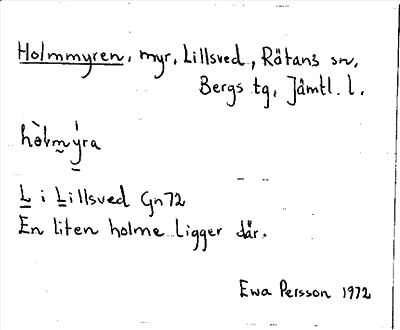 Holmmyren, myr, Lillsved, Rätans sn,
Bergs tg, Jämtl. l.
hòlmyra
L i Lillsved Gn72
En liten holme ligger där.
Ewa Persson 1972